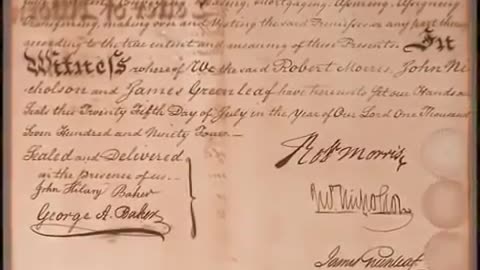 leasing, mortgaging, assigning
transferring, making over and Vesting the said Premises or any part there
according to the true intent and meaning of these Presents. In
Witness whereof We the said Robert Morris, John Ni
cholson and James Greenleaf have hereunto set our Hands a
Seals this Twenty Fifth Day of July in the Year of Our Lord One Thousand
Seven Hundred and Ninety Four. —
Sealed and Delivered
in the presence of us. —
John Hilary Baker
George A. Baker
Robt Morris
Jno Nicholson
James Greenleaf